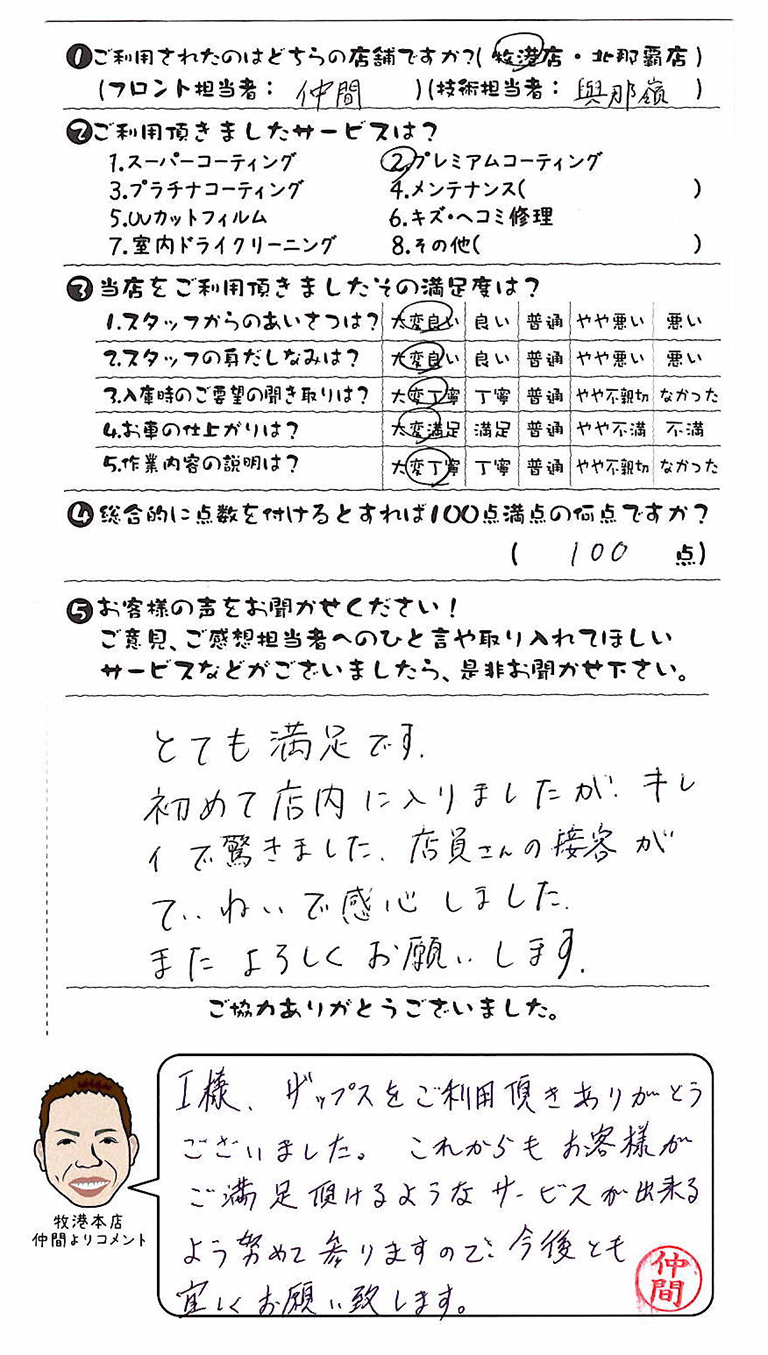 ❶ご利用されたのはどちらの店舗ですか?(牧港店・北那覇店)
(フロント担当者: 仲間 )(技術担当者: 與那嶺 )
❷ご利用頂きましたサービスは?
1.スーパーコーティング 2.プレミアムコーティング
3.プラチナコーティング 4.メンテナンス( )
5.UVカットフィルム 6.キズ・ヘコミ修理
7.室内ドライクリーニング 8.その他( )
❸当店をご利用頂きましたその満足度は?
1.スタッフからのあいさつは? 大変良い 良い 普通 やや悪い 悪い
2.スタッフの身だしなみは? 大変良い 良い 普通 やや悪い 悪い
3.入庫時のご要望の聞き取りは? 大変丁寧 丁寧 普通 やや不親切 なかった
4.お車の仕上がりは? 大変満足 満足 普通 やや不満 不満
5.作業内容の説明は? 大変丁寧 丁寧 普通 やや不親切 なかった
❹総合的に点数を付けるとすれば100点満点の何点ですか?
( 100 点)
❺お客様の声をお聞かせください!
ご意見、ご感想担当者へのひと言や取り入れてほしい
サービスなどがございましたら、是非お聞かせ下さい。
とても満足です.
初めて店内に入りましたが、キレ
イで驚きました、店員さんの接客が
ていねいで感心しました.
またよろしくお願いします.
ご協力ありがとうございました。
I様、ザップスをご利用頂きありがとう
ございました。これからもお客様が
ご満足頂けるようなサービスが出来る
よう努めて参りますので、今後とも
宜しくお願い致します。
仲間
牧港本店
仲間よりコメント